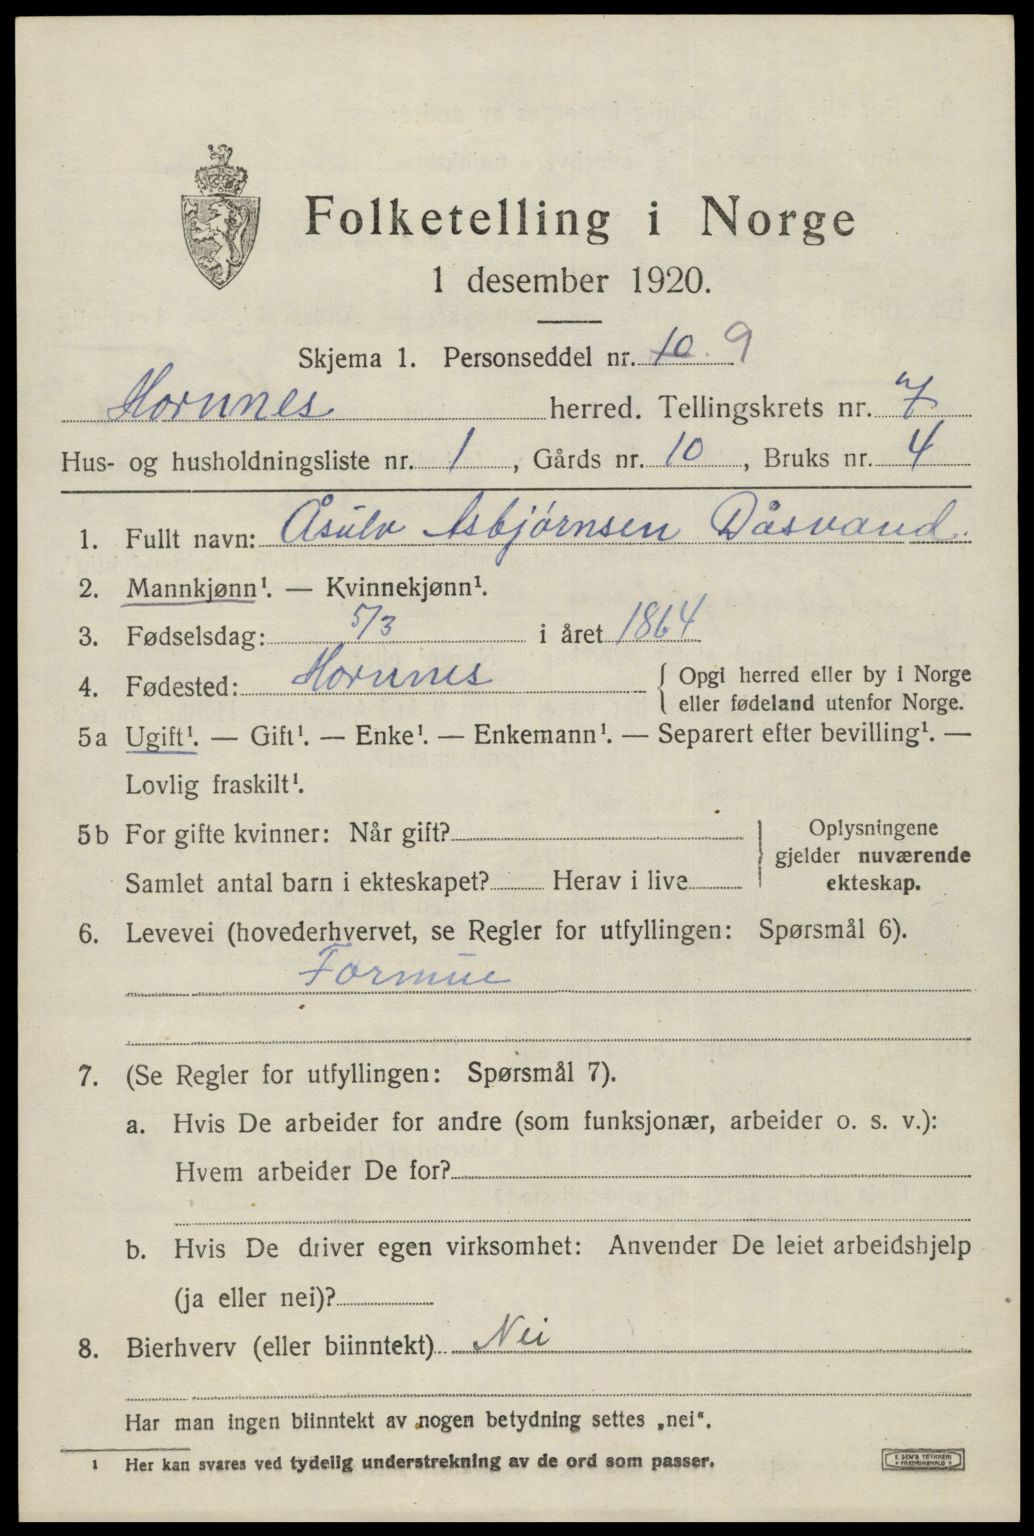 Folketelling i Norge
1 desember 1920.
Skjema 1. Personseddel nr. 10. 9
Hornnes herred. Tellingskrets nr. 7
Hus- og husholdningsliste nr. 1, Gårds nr. 10, Bruks nr. 4
1. Fullt navn: Åsulv Asbjørnsen Dåsvand.
2. Mannkjønn¹. — Kvinnekjønn¹.
3. Fødselsdag: 5/3 i året 1864
4. Fødested: Hornnes { Opgi herred eller by i Norge
eller fødeland utenfor Norge.
5a Ugift¹. — Gift¹. — Enke¹. — Enkemann¹. — Separert efter bevilling¹. —
Lovlig fraskilt¹.
5b For gifte kvinner: Når gift? } Oplysningene
gjelder nuværende
Samlet antal barn i ekteskapet? Herav i live ekteskap.
6. Levevei (hovederhvervet, se Regler for utfyllingen: Spørsmål 6).
Formue
7. (Se Regler for utfyllingen: Spørsmål 7).
a. Hvis De arbeider for andre (som funksjonær, arbeider o. s. v.):
Hvem arbeider De for?
b. Hvis De driver egen virksomhet: Anvender De leiet arbeidshjelp
(ja eller nei)?
8. Bierhverv (eller biinntekt) Nei
Har man ingen biinntekt av nogen betydning settes „nei“.
¹ Her kan svares ved tydelig understrekning av de ord som passer.
E. SEM'S TRYKKERI
FREDRIKSHALD